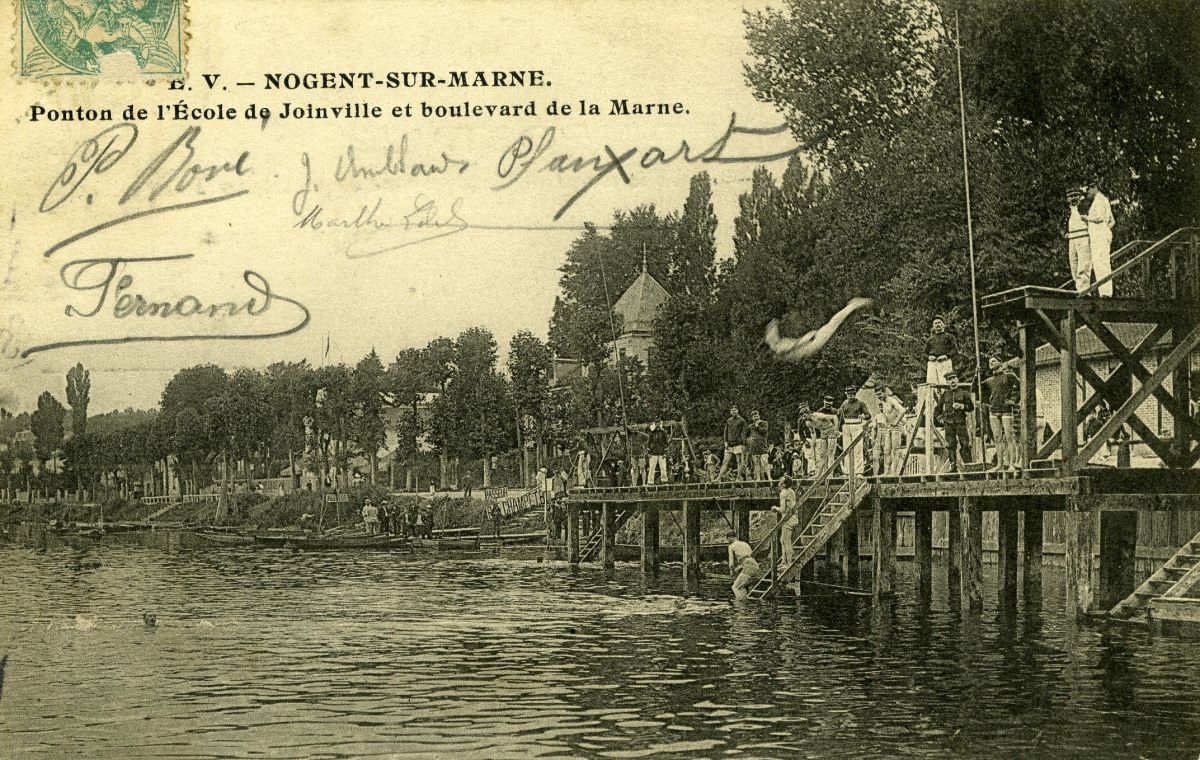 E. V. — NOGENT-SUR-MARNE.
Ponton de l'École de Joinville et boulevard de la Marne.
P.
J. Planxart
Marthe
Fernand